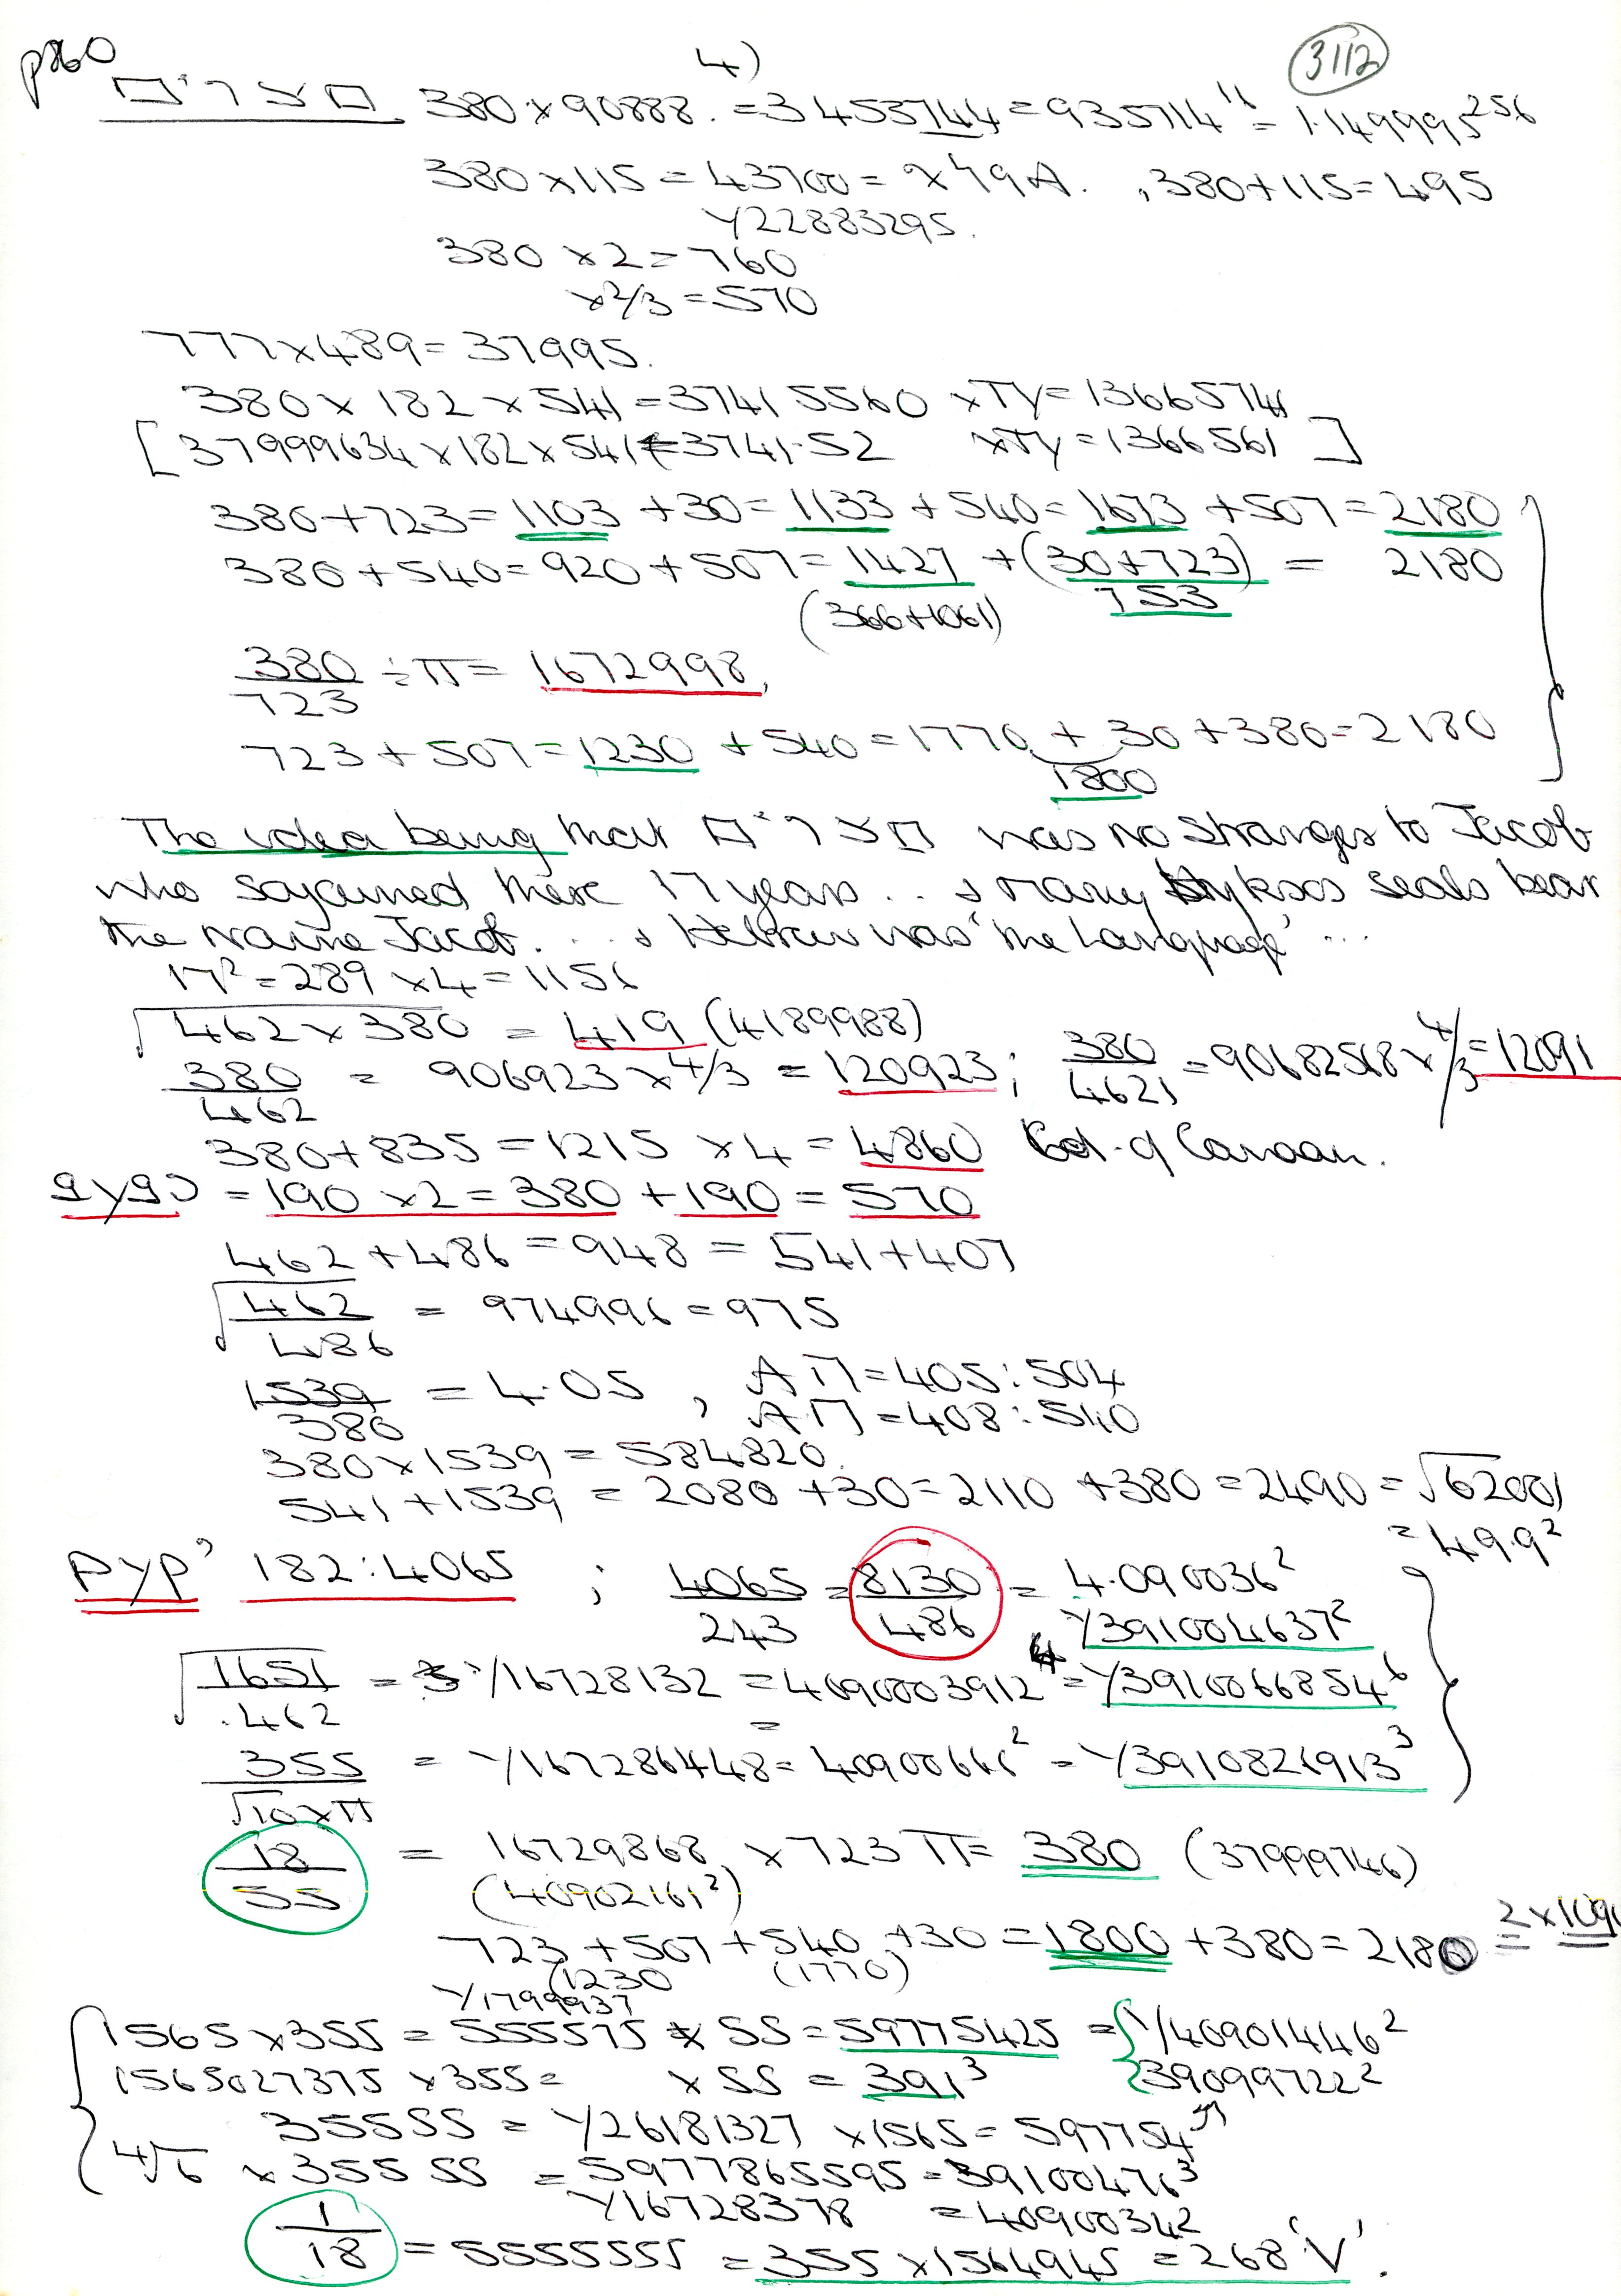 p860 4) 3112
מצרים 380 × 90888. = 3453744 = 935714" = 1.149995^256
380 × 115 = 43700 = × 49A. , 380 + 115 = 495
Y22883295.
380 × 2 = 760
× 2/3 = 570
777 × 489 = 37995.
380 × 182 × 541 = 3741 5560 × TY = 1366574
[ 37999634 × 182 × 541 = 3741.52 × TY = 1366561 ]
380 + 723 = 1103 + 30 = 1133 + 540 = 1673 + 507 = 2180
380 + 540 = 920 + 507 = 1427 + (30 + 723) = 2180
(366 + 1061) 753
380/723 ÷ π = 1672998,
723 + 507 = 1230 + 540 = 1770 + 30 + 380 = 2180
1800
The idea being that מצרים was no stranger to Jacob
who sojourned there 17 years... & many Hyksos seals bear
the name Jacob.... & Hebrew was 'the Language'...
17² = 289 × 4 = 1156
√462 × 380 = 419 (4189988)
380/462 = 906923 × 4/3 = 120923 ; 380/4621 = 90682518 × 4/3 = 12091
380 + 835 = 1215 × 4 = 4860 God. of Canaan.
= 190 × 2 = 380 + 190 = 570
462 + 486 = 948 = 541 + 407
√462/486 = 974996 = 975
1539/380 = 4.05 , AΠ = 405 : 504
AΠ = 408 : 540
380 × 1539 = 584820
541 + 1539 = 2080 + 30 = 2110 + 380 = 2490 = √62001
= 49.9²
182 : 4065 ; 4065/243 = 8130/486 = 4.090036²
Y391004637²
√1651/.462 = Y16728132 = 4090003912⁴ = Y3910066854⁶
355/√10×π = Y167286448 = 40900666² = Y3910821913³
18/55 = 16729868 × 723 π = 380 (37999746)
(40902161²)
723 + 507 + 540 + 30 = 1800 + 380 = 2180 = 2 × 1091
(1230 (1770)
Y1799937
1565 × 355 = 555575 × 55 = 59775425 = Y409014446²
1565027375 × 355 = × 55 = 391³ 390997222²
35555 = Y26181327 × 1565 = 597754"
4√6 × 355 55 = 5977865595 = 39100476³
Y16728378 = 40900342²
1/18 = 5555555 = 355 × 1564945 = 268 'V'.